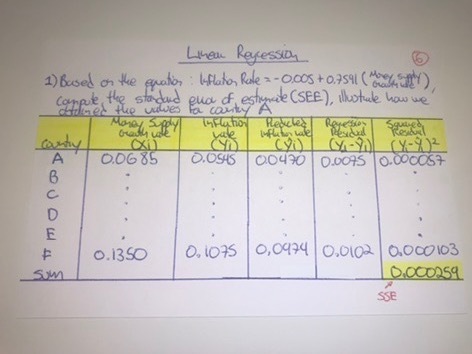 Linear Regression
6
1) Based on the equation: Inflation Rate = -0.005 + 0.7591 (Money supply growth rate),
compute the standard error of estimate (SEE), illustrate how we
obtained the values for country A
Country Money Supply Growth rate (Xi) Inflation rate (Yi) Predicted Inflation rate (Ŷi) Regression Residual (Yi-Ŷi) Squared Residual (Yi-Ŷi)²
A 0.0685 0.0545 0.0470 0.0075 0.000057
B . . . . .
C . . . . .
D . . . . .
E . . . . .
F 0.1350 0.1075 0.0974 0.0102 0.000103
Sum 0.000259
SSE